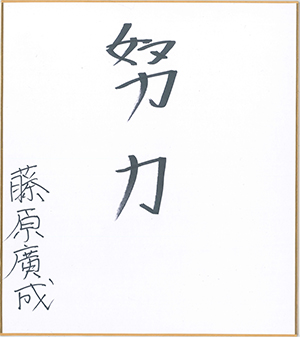 努力
藤原廣成